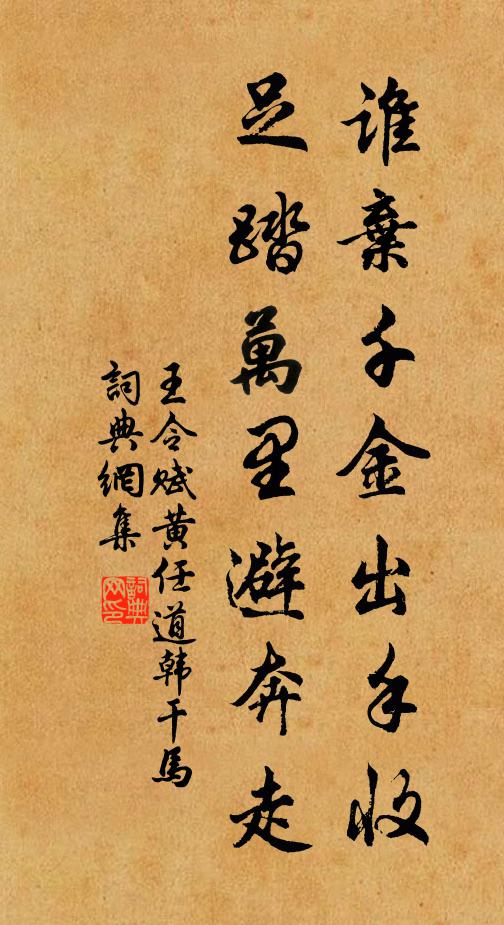 誰棄千金出手收
足踏萬里避奔走
王令賦黄任道韩干馬
詞典網集
詞典网印